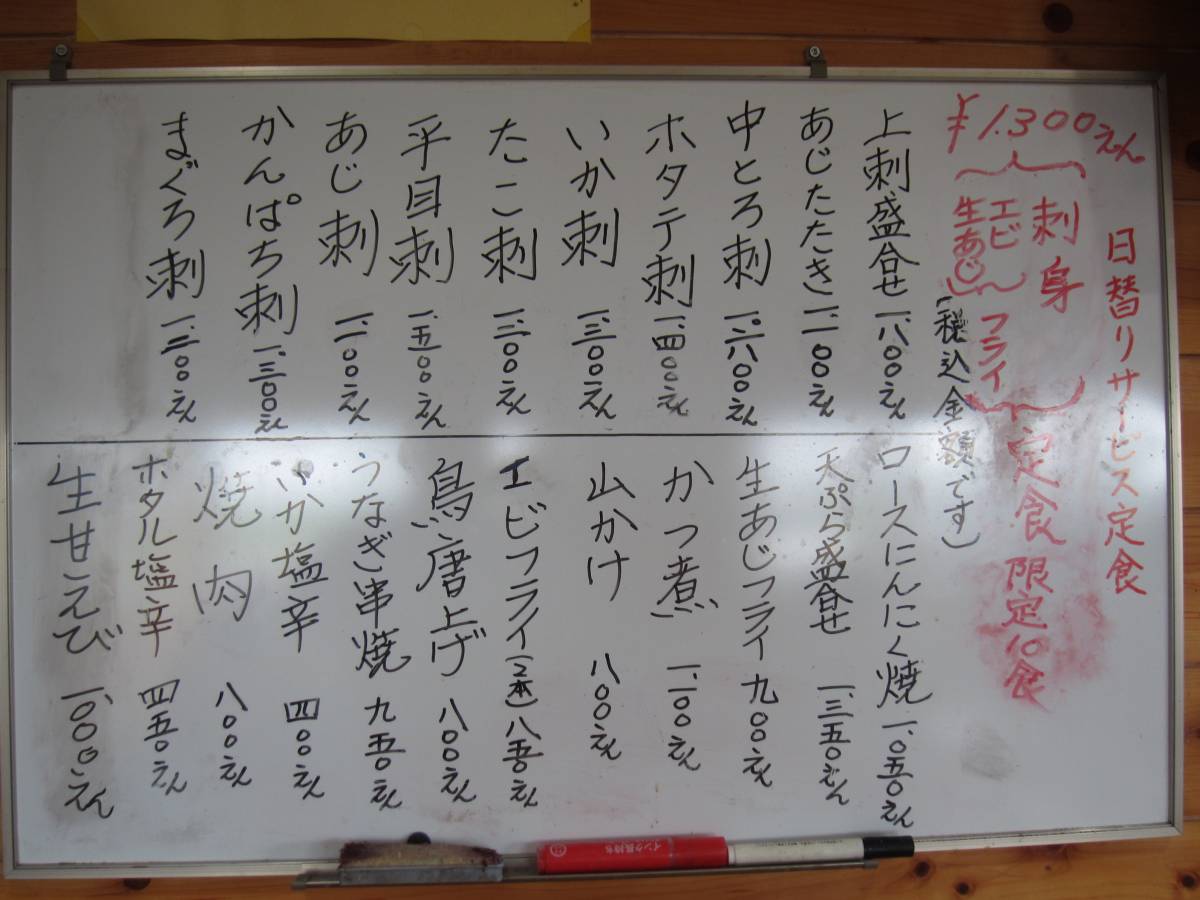 日替りサービス定食
刺身
エビ
生あじ
フライ
定食 限定10食
¥1.300えん
(税込金額です)
上刺盛合せ 一、八〇〇えん
あじたたき 一、一〇〇えん
中とろ刺
ホタテ刺 一、四〇〇えん
いか刺 一、三〇〇えん
たこ刺 一、三〇〇えん
平目刺 一、五〇〇えん
あじ刺 一、一〇〇えん
かんぱち刺 一、三〇〇えん
まぐろ刺
ロースにんにく焼 一、〇五〇えん
天ぷら盛合せ 一、三五〇えん
生あじフライ 九〇〇えん
かつ煮 一、一〇〇えん
山かけ 八〇〇えん
エビフライ(2本) 八五〇えん
鳥唐上げ 八〇〇えん
うなぎ串焼 九五〇えん
いか塩辛 四〇〇えん
焼肉 八〇〇えん
ホタル塩辛 四五〇えん
生甘えび 一、〇〇〇えん
インク長持ち